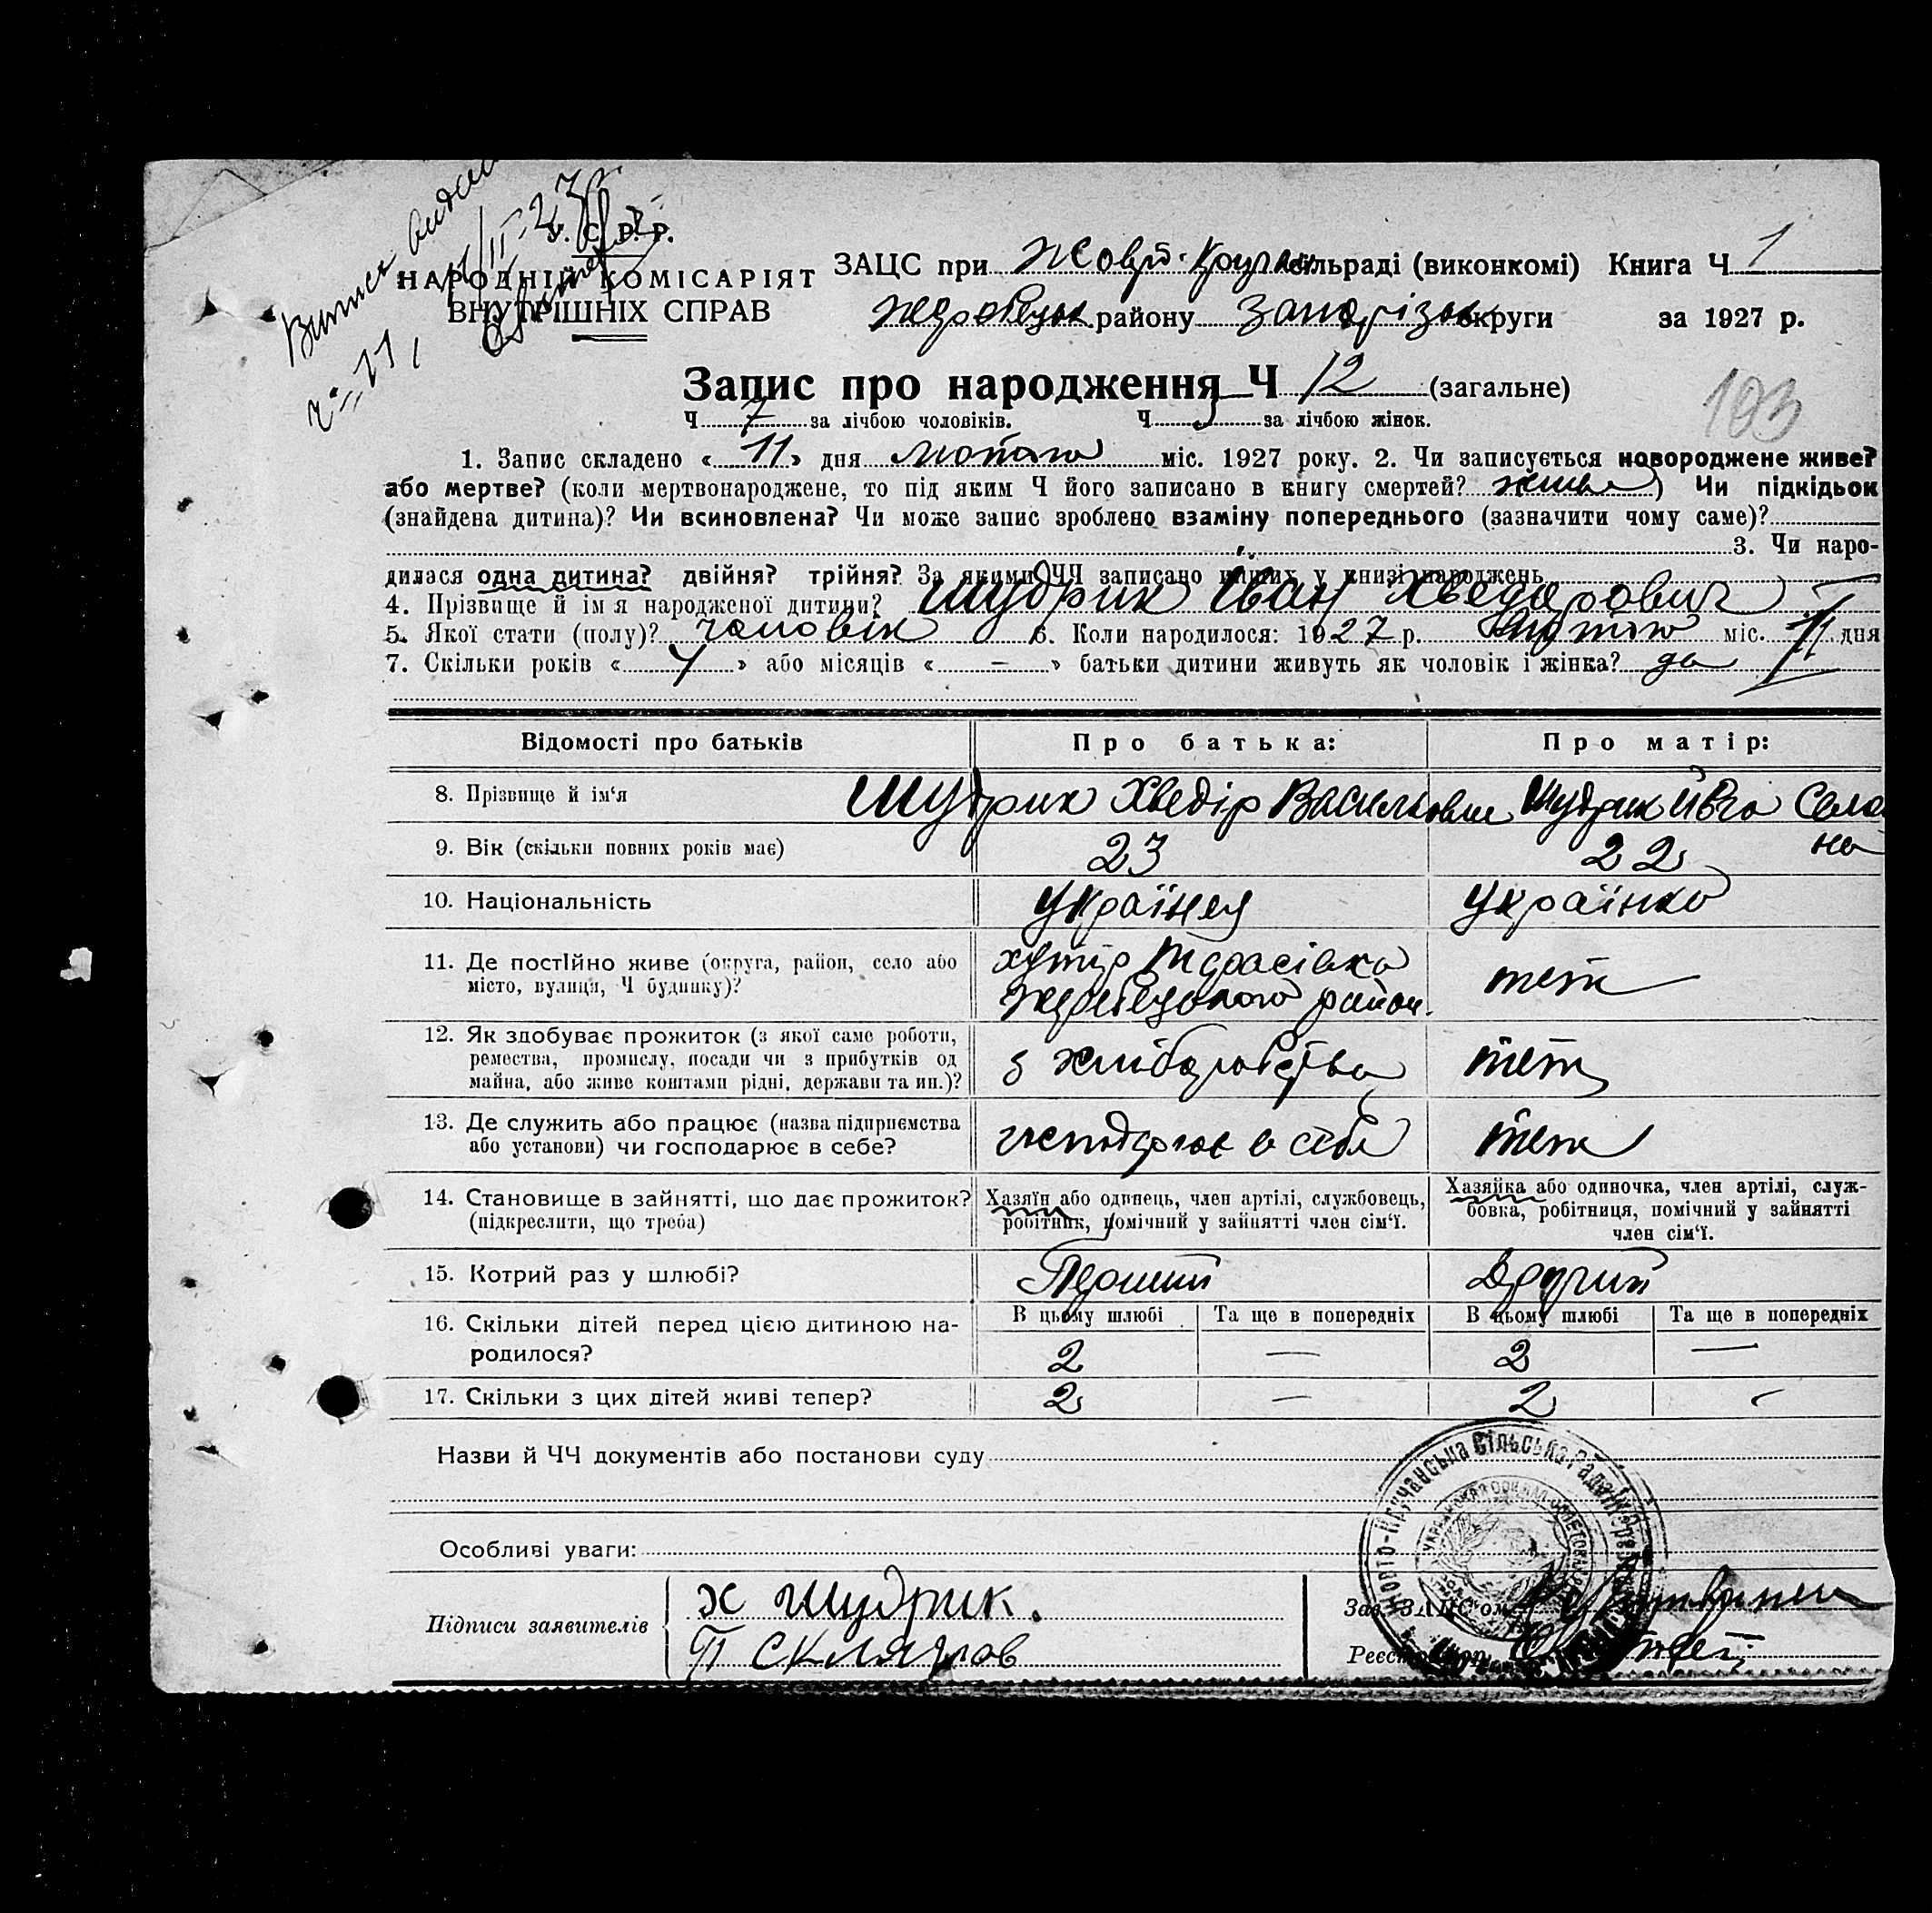 Витись видана
ч=11, 11/II-27 р.
У. С. Р. Р.
НАРОДНІЙ КОМІСАРІЯТ
ВНУТРІШНІХ СПРАВ
ЗАЦС при сільраді (виконкомі) Книга Ч 1
району Запорізьк округи за 1927 р.
Запис про народження Ч 12 (загальне)
103
Ч 7 за лічбою чоловіків. Ч 5 за лічбою жінок.
1. Запис складено « 11 » дня лютого міс. 1927 року. 2. Чи записується новороджене живе?
або мертве? (коли мертвонароджене, то під яким Ч його записано в книгу смертей? живе) Чи підкідьок
(знайдена дитина)? Чи всиновлена? Чи може запис зроблено взаміну попереднього (зазначити чому саме)?
3. Чи наро-
дилася одна дитина? двійня? трійня? За якими ЧЧ записано інших у книзі народжень
4. Прізвище й ім я народженої дитини? Шудрик Іван Хведорович
5. Якої стати (полу)? чоловік 6. Коли народилося: 1927 р. Лютого міс. 11 дня
7. Скільки років « 4 » або місяців « – » батьки дитини живуть як чоловік і жінка? да
Відомості про батьків Про батька: Про матір:
8. Прізвище й ім‘я Шудрик Хведір Васильович Шудрик Ївга
9. Вік (скільки повних років має) 23 22
10. Національність Українец Українка
11. Де постІйно живе (округа, район, село або хутір Тарасівка
місто, вулиця, Ч будинку)? Жеребецького район. теж
12. Як здобуває прожиток (з якої саме роботи,
ремества, промислу, посади чи з прибутків од з хліборобства теж
майна, або живе коштами рідні, держави та ин.)?
13. Де служить або працює (назва підприємства
або установи) чи господарює в себе? господарює в себе теж
14. Становище в зайнятті, що дає прожиток? Хазяїн або одинець, член артілі, службовець, Хазяйка або одиночка, член артілі, служ-
(підкреслити, що треба) робітник, помічний у зайнятті член сім‘ї. бовка, робітниця, помічний у зайнятті
член сім‘ї.
15. Котрий раз у шлюбі? Перший Другий
16. Скільки дітей перед цією дитиною на- В цьому шлюбі Та ще в попередніх В цьому шлюбі Та ще в попередніх
родилося? 2 — 2 —
17. Скільки з цих дітей живі тепер? 2 – 2 -
Назви й ЧЧ документів або постанови суду
Особливі уваги:
Ново-Кручанська Сільська Рада
Підписи заявителів Х Шудрик.
П Скляров
Зав. ЗАЦС‘ом
Реєстратор